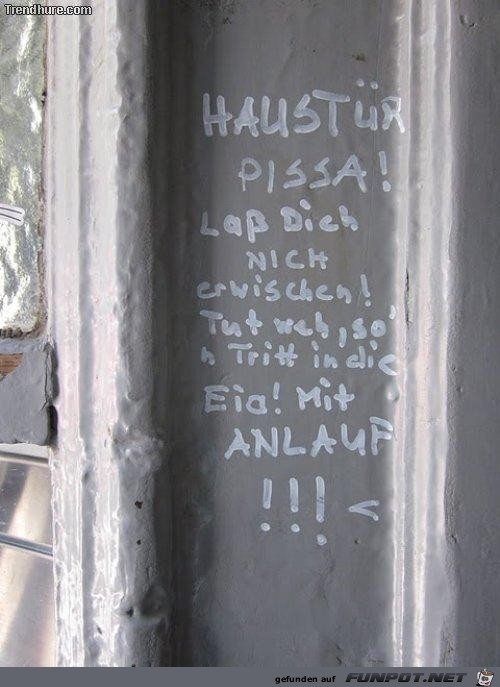 Trendhure.com
HAUSTÜR
PISSA!
Laß Dich
NICH
erwischen!
Tut weh, so'
n Tritt in die
Eia! Mit
ANLAUF
!!! <
gefunden auf FUNPOT.NET